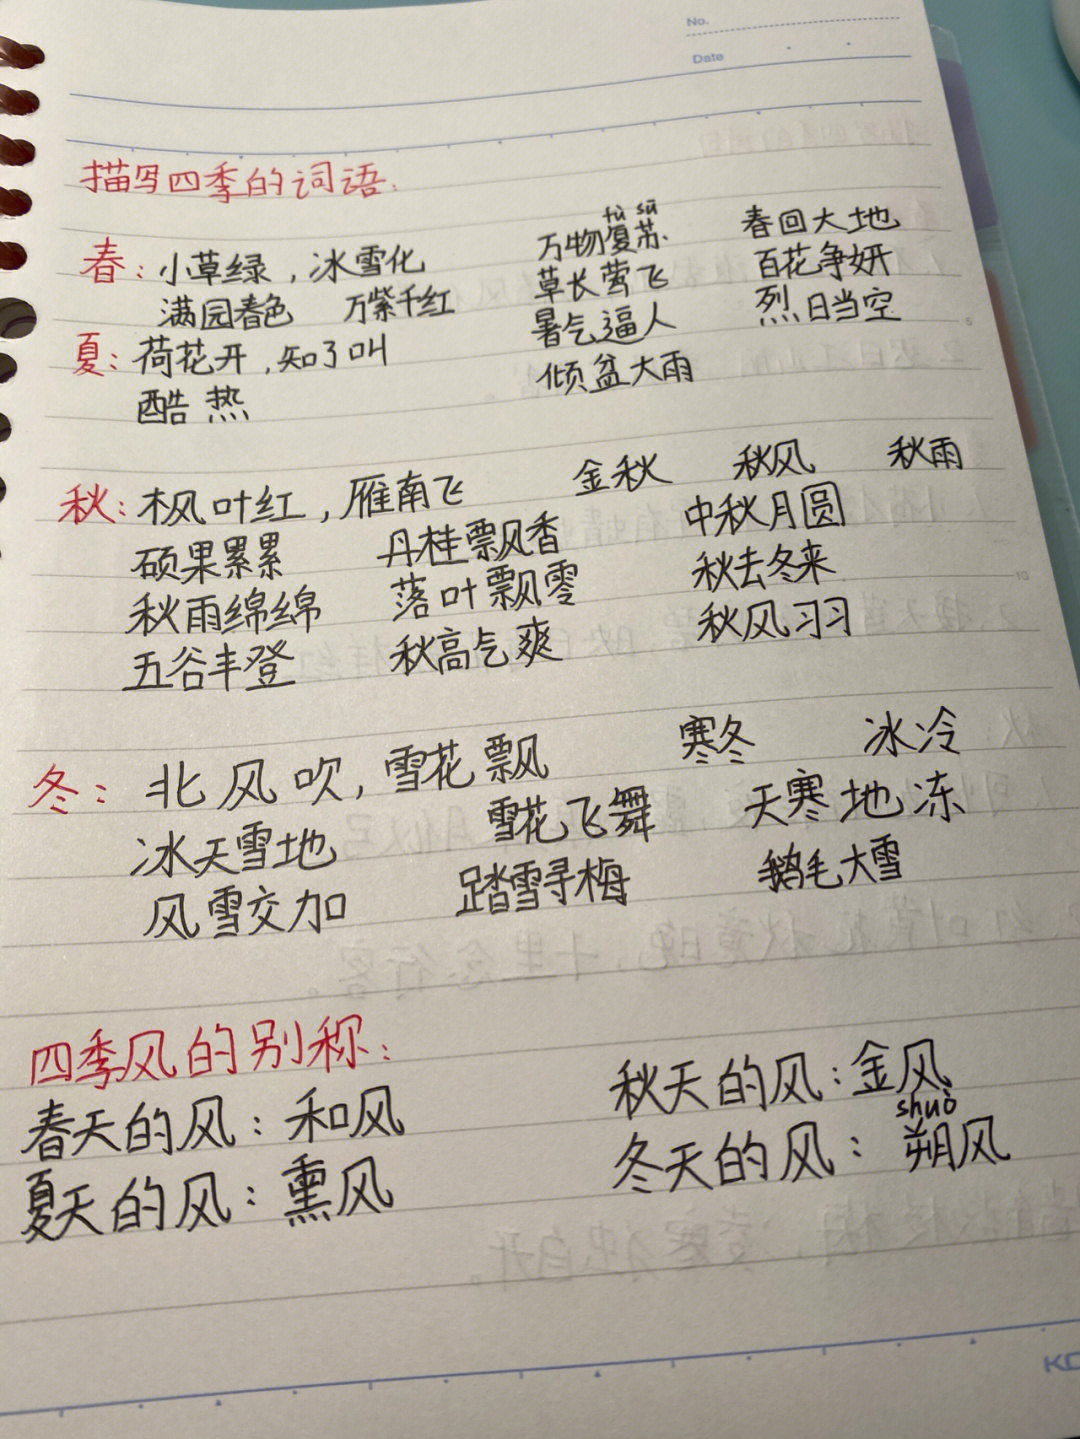 No.
Date
描写四季的词语.
fù sū
春: 小草绿, 冰雪化 万物复苏. 春回大地
满园春色 万紫千红 草长莺飞 百花争妍
夏: 荷花开, 知了叫 暑气逼人 烈日当空
酷热 倾盆大雨
秋: 枫叶红, 雁南飞 金秋 秋风 秋雨
硕果累累 丹桂飘香 中秋月圆
秋雨绵绵 落叶飘零 秋去冬来
五谷丰登 秋高气爽 秋风习习
冬: 北风吹, 雪花飘 寒冬 冰冷
冰天雪地 雪花飞舞 天寒地冻
风雪交加 踏雪寻梅 鹅毛大雪
四季风的别称:
春天的风: 和风 秋天的风: 金风
shuò
夏天的风: 熏风 冬天的风: 朔风